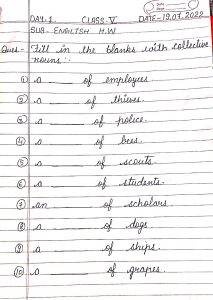 DAY-1 CLASS-V DATE-19.07.2022
SUB- ENGLISH H.W
Ques- Fill in the blanks with collective
nouns:-
① a ______ of employees.
② a ______ of thieves.
③ a ______ of police.
④ a ______ of bees.
⑤ a ______ of scouts.
⑥ a ______ of students.
⑦ an ______ of scholars.
⑧ a ______ of dogs.
⑨ a ______ of ships.
⑩ a ______ of grapes.